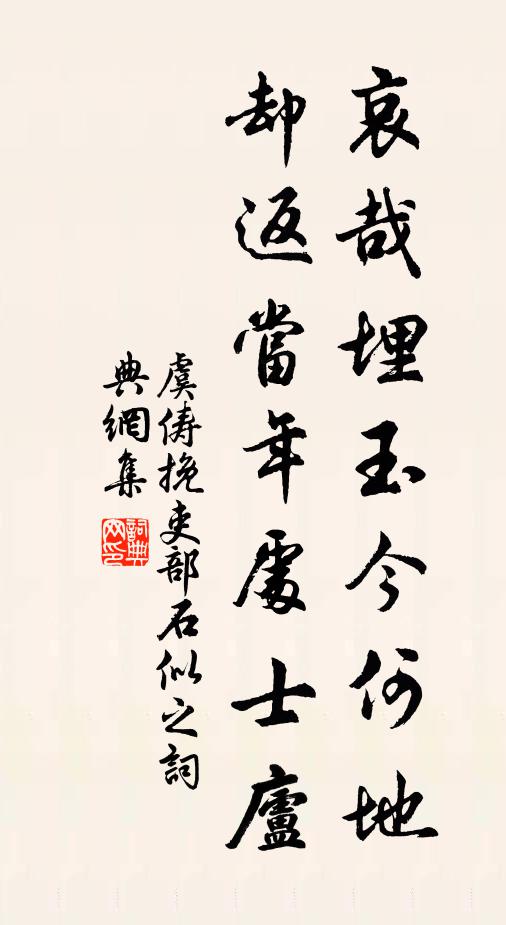 哀哉埋玉今何地
却返當年處士廬
虞儔挽吏部石似之詞
典網集
詞典網印